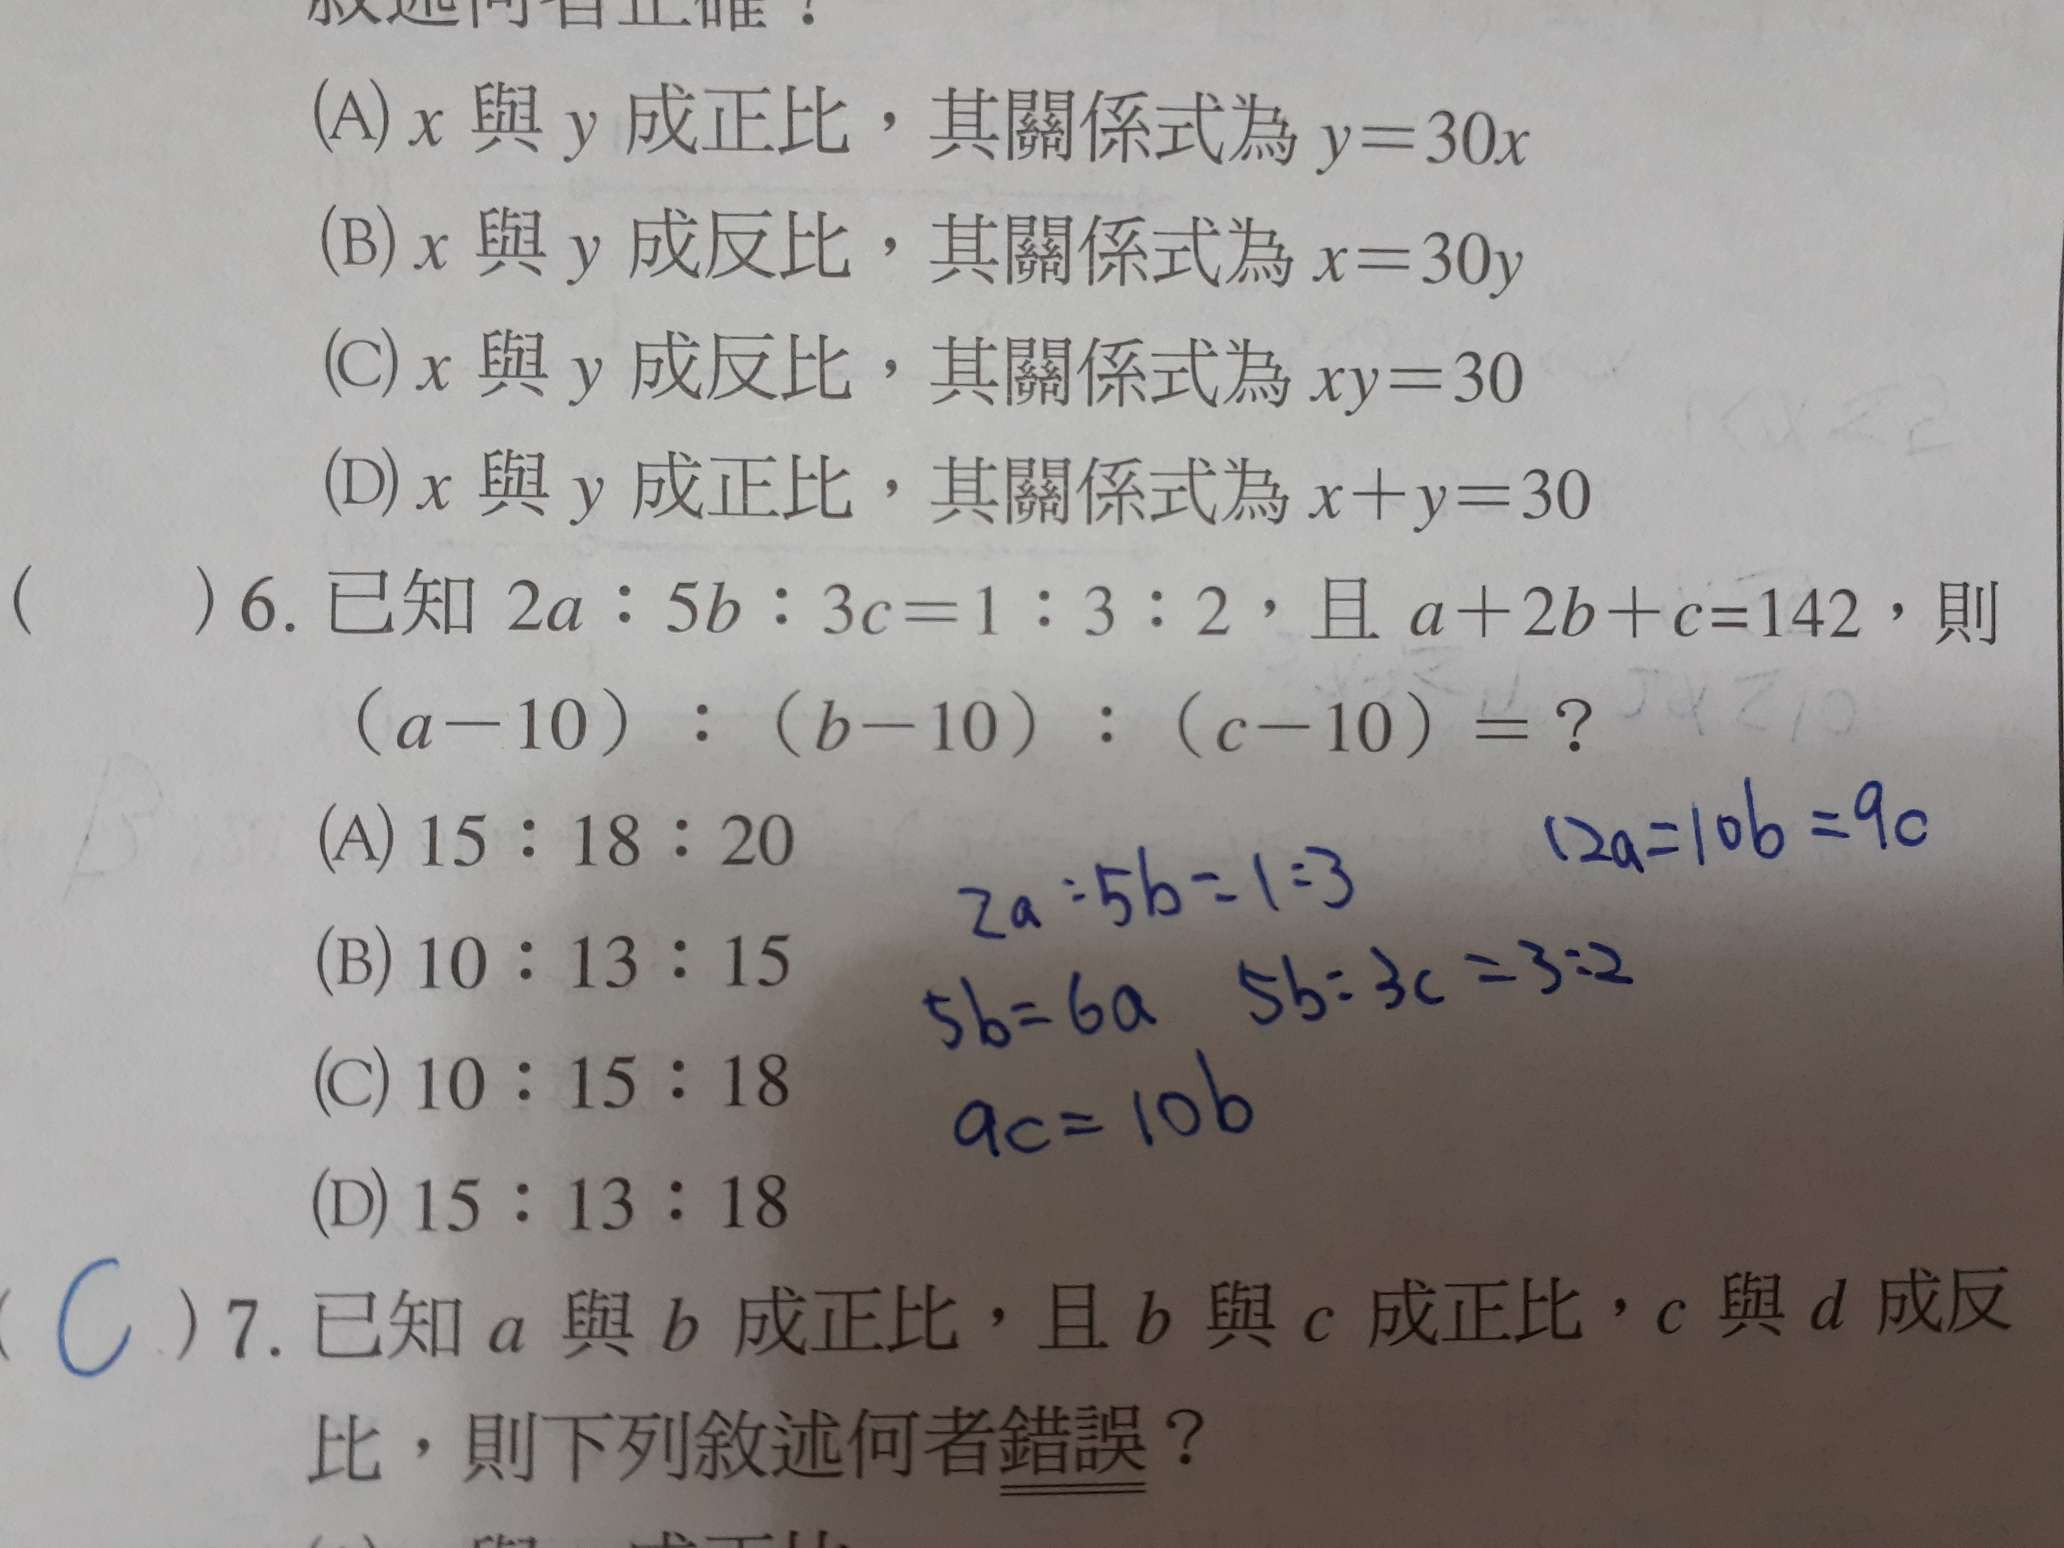 敘述何者正確？
(A) x 與 y 成正比，其關係式為 y＝30x
(B) x 與 y 成反比，其關係式為 x＝30y
(C) x 與 y 成反比，其關係式為 xy＝30
(D) x 與 y 成正比，其關係式為 x＋y＝30
(　　) 6. 已知 2a：5b：3c＝1：3：2，且 a＋2b＋c=142，則
（a－10）：（b－10）：（c－10）＝？
(A) 15：18：20
(B) 10：13：15
(C) 10：15：18
(D) 15：13：18
12a=10b=9c
2a:5b=1:3
5b=6a 5b:3c=3:2
9c=10b
( C ) 7. 已知 a 與 b 成正比，且 b 與 c 成正比，c 與 d 成反
比，則下列敘述何者錯誤？